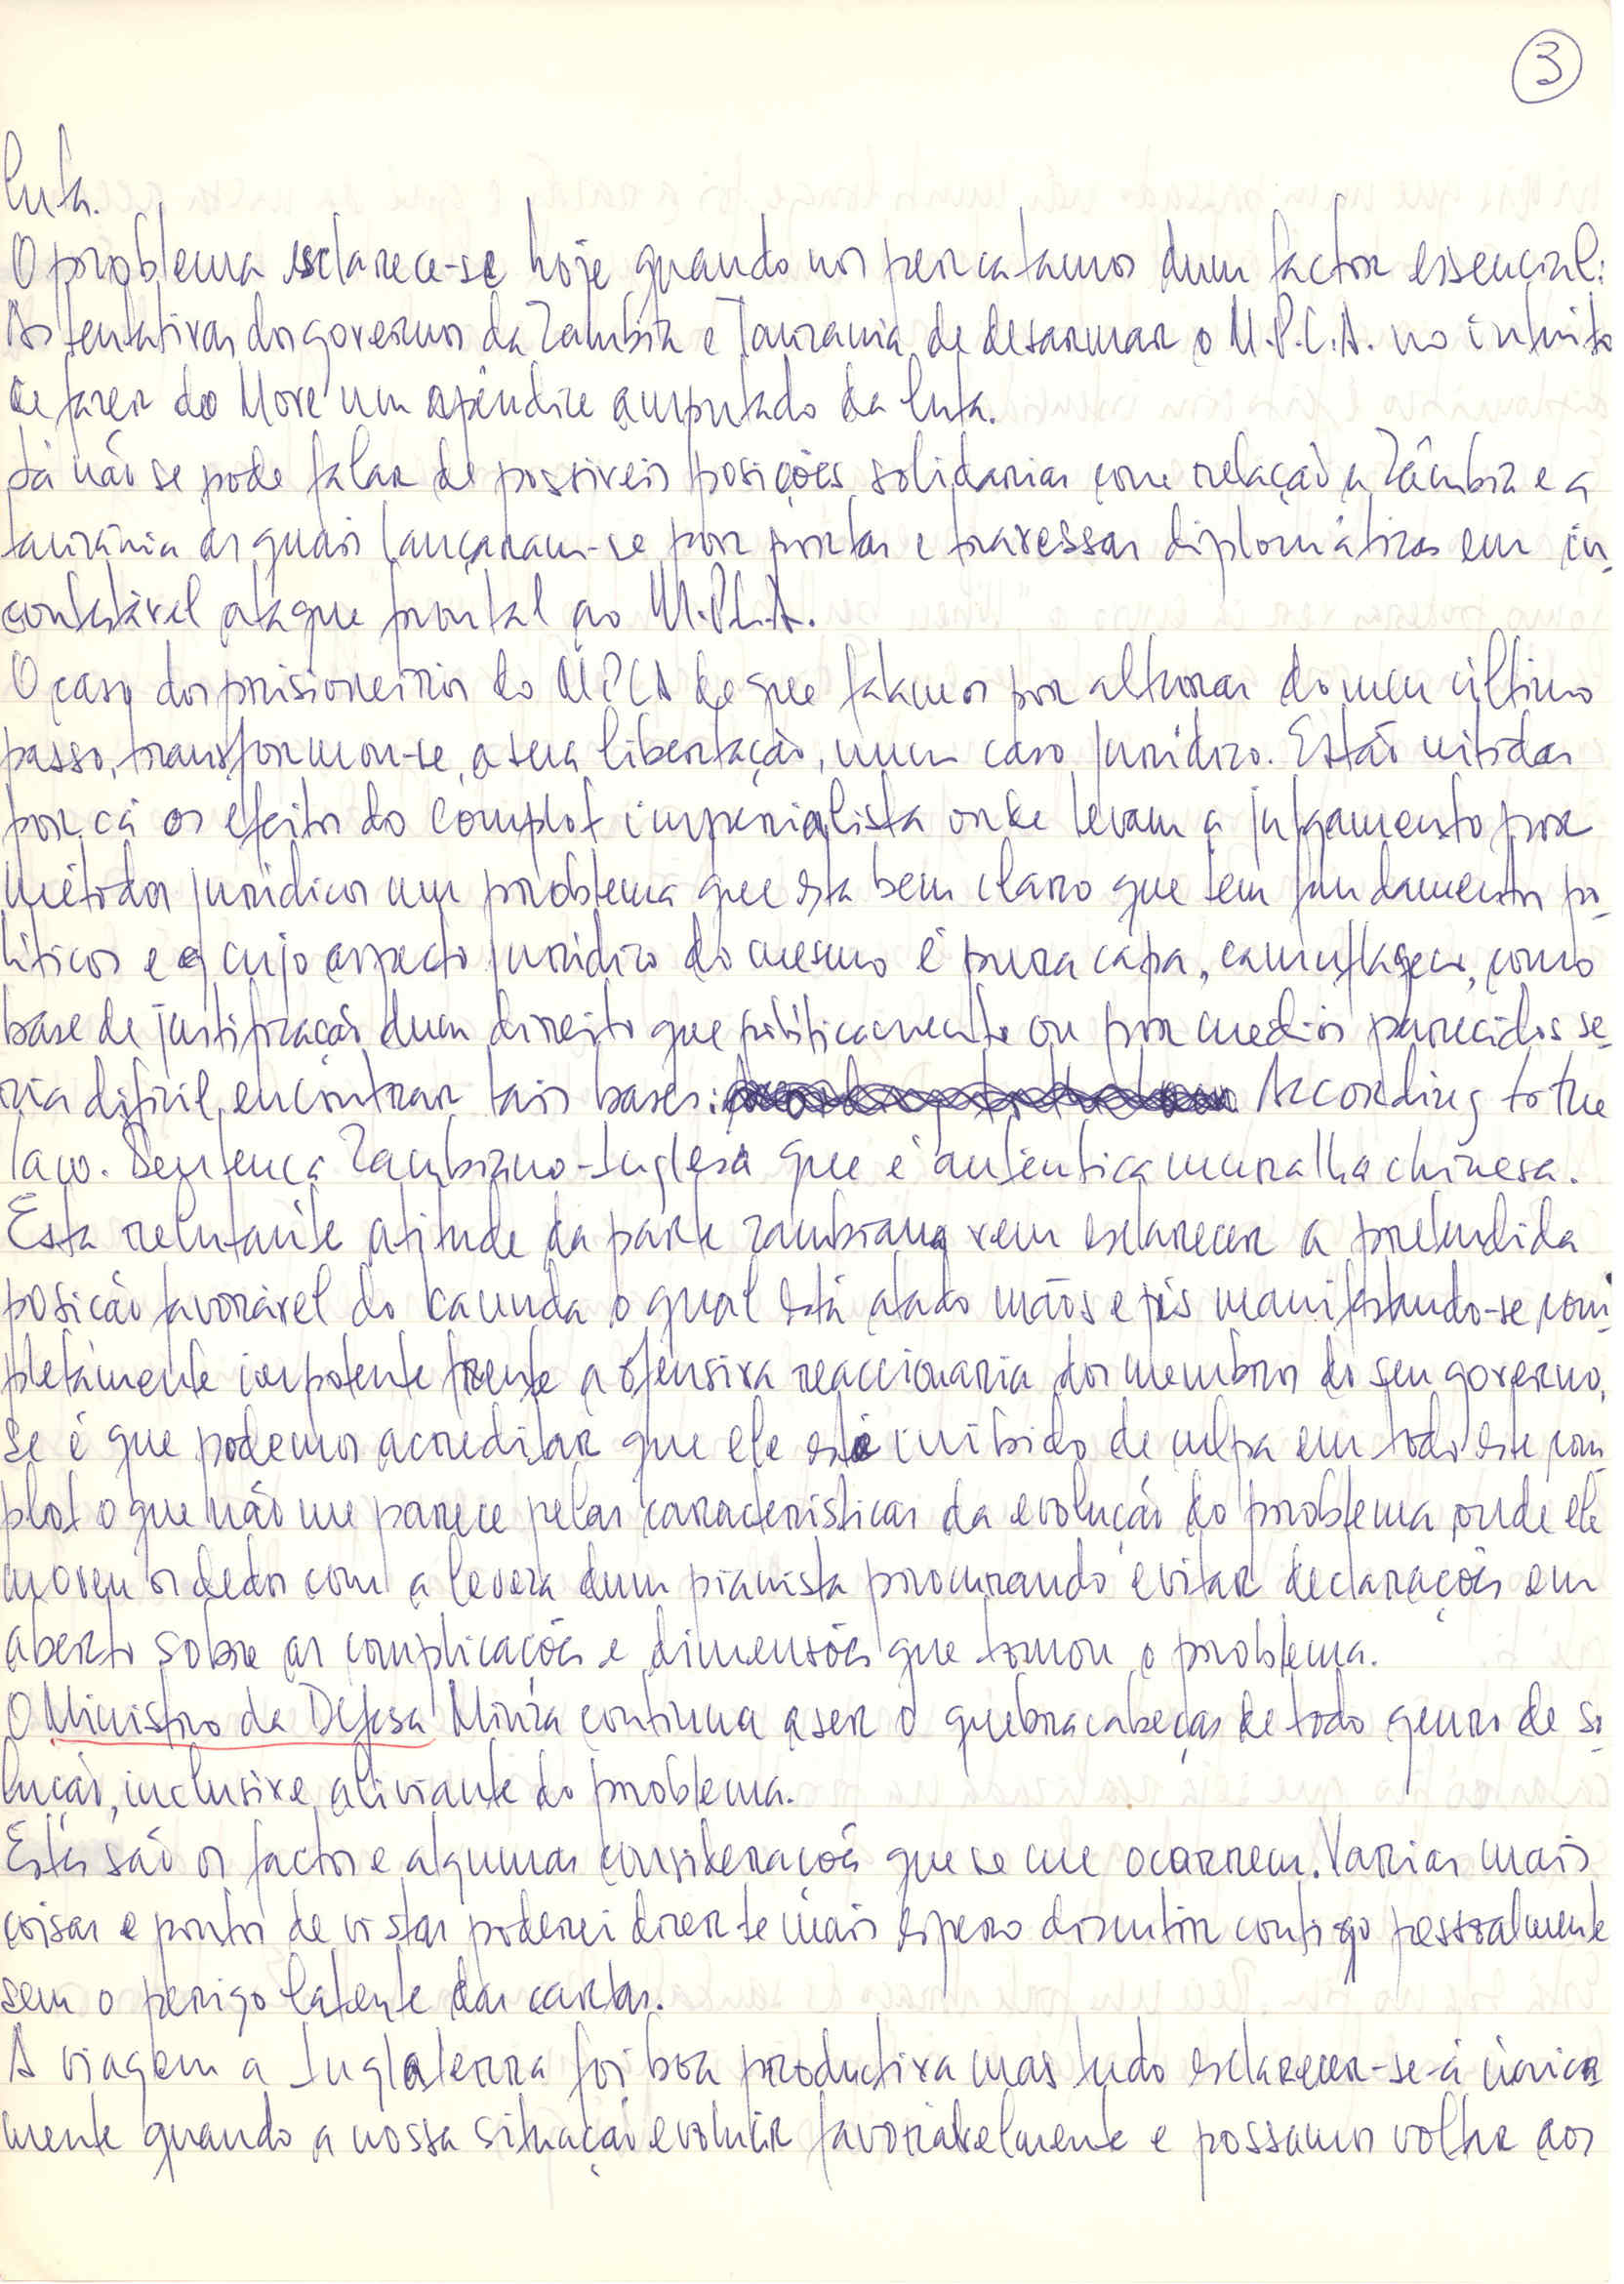 3
luta.
O problema esclarece-se hoje quando nos percatamos dum factor essencial:
As tentativas dos governos da Zambia e Tanzania de desarmar o M.P.L.A. no intuito
de fazer do Move um apêndice amputado da luta.
Já não se pode falar de possiveis posições solidarias com relação a Zâmbia e a
tanzânia as quais lançaram-se por portas e travessas diplomáticas em in-
contestável ataque frontal ao M.P.L.A.
O caso dos prisioneiros do MPLA de que falamos por alturas do meu último
passo, transformou-se, a sua libertação, num caso jurídico. Estão nitidos
por cá os efeitos do complot imperialista onde levam a julgamento por
métodos jurídicos um problema que esta bem claro que tem fundamentos po-
líticos e cujo aspecto jurídico do mesmo é pura capa, camuflagem, como
base de justificação dum direito que politicamente ou por medios parecidos se-
ria dificil encontrar tais bases: According to the
law. Sentença Zambiano-Inglesa que é autentica muralha chinesa.
Esta relutante atitude da parte zambiana vem esclarecer a pretendida
posicão favorável do Kaunda o qual está atado mãos e pés manifestando-se com-
pletamente impotente frente a ofensiva reaccionaria dos membros do seu governo,
se é que podemos acreditar que ele está inibido de culpa em todo este com-
plot o que não me parece pelas caracteristicas da evolução do problema onde ele
moveu os dedos com a leveza dum pianista procurando evitar declarações em
aberto sobre as complicações e dimensões que tomou o problema.
O Ministro da Defesa Minza continua a ser o quebracabeças de todo genro de so-
lução, inclusive aliviante do problema.
Estes são os factos e algumas considerações que se me ocorrem. Varias mais
coisas e pontos de vistas poderei dizer-te mais espero discutir contigo pessoalmente
sem o perigo latente das cartas.
A viagem a Inglaterra foi boa productiva mas tudo esclarecer-se-á única
mente quando a nossa situação evoluir favoravelmente e possamos voltar aos